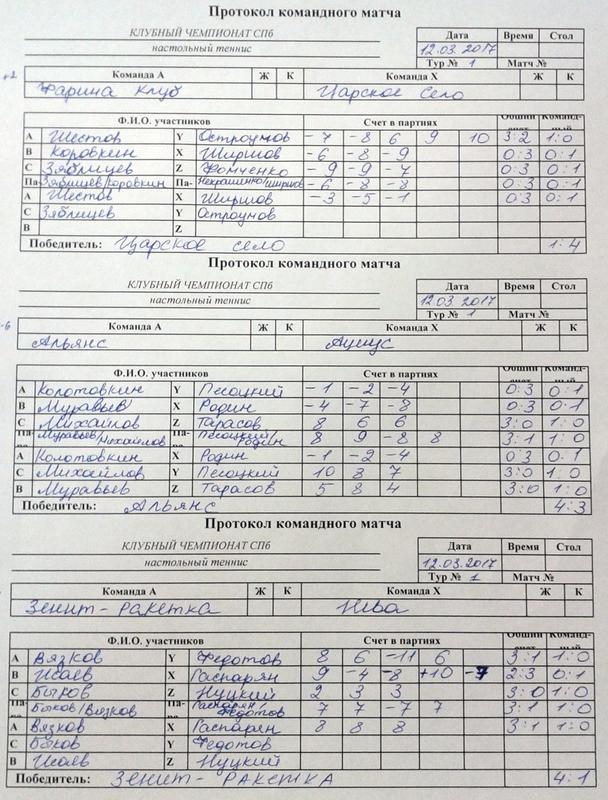 Протокол командного матча
КЛУБНЫЙ ЧЕМПИОНАТ СПб
настольный теннис
Дата Время Стол
12.03.2017
Тур № 1 Матч №
Команда А Ж К Команда Х Ж К
Фарина Клуб Царское Село
Ф.И.О. участников Счет в партиях Общий счет Команд-ный
А Шестов Y Остроумов -7 -8 6 9 10 3:2 1:0
В Коровкин X Ширшов -6 -8 -9 0:3 0:1
С Зяблицев Z Фомченко -9 -9 -7 0:3 0:1
Па- Зяблицев/Коровкин Па- Некрашенко/Ширшов -6 -8 -8 0:3 0:1
А Шестов X Ширшов -3 -5 -1 0:3 0:1
С Зяблицев Y Остроумов
В Z
Победитель: Царское село 1:4
Протокол командного матча
КЛУБНЫЙ ЧЕМПИОНАТ СПб
настольный теннис
Дата Время Стол
12.03.2017
Тур № 1 Матч №
-6
Команда А Ж К Команда Х Ж К
Альянс
Ф.И.О. участников Счет в партиях Общий счет Команд-ный
А Колотовкин Y Песоцкий -1 -2 -4 0:3 0:1
В Муравьев X Родин -4 -7 -8 0:3 0:1
С Михайлов Z Тарасов 8 6 6 3:0 1:0
Па-ра Муравьев/Михайлов Па-ра Песоцкий/Родин 8 9 -8 8 3:1 1:0
А Колотовкин X Родин -1 -2 -4 0:3 0:1
С Михайлов Y Песоцкий 10 8 7 3:0 1:0
В Муравьев Z Тарасов 5 8 4 3:0 1:0
Победитель: Альянс 4:3
Протокол командного матча
КЛУБНЫЙ ЧЕМПИОНАТ СПб
настольный теннис
Дата Время Стол
12.03.2017
Тур № 1 Матч №
Команда А Ж К Команда Х Ж К
Зенит-ракетка Нева
Ф.И.О. участников Счет в партиях Общий счет Команд-ный
А Вязков Y Федотов 8 6 -11 6 3:1 1:0
В Исаев X Гаспарян 9 -4 -8 +10 -7 2:3 0:1
С Быков Z Нуцкий 2 3 3 3:0 1:0
Па-ра Быков/Вязков Па-ра Гаспарян/Федотов 7 7 -7 7 3:1 1:0
А Вязков X Гаспарян 8 8 8 3:1 1:0
С Быков Y Федотов
В Исаев Z Нуцкий
Победитель: Зенит-Ракетка 4:1